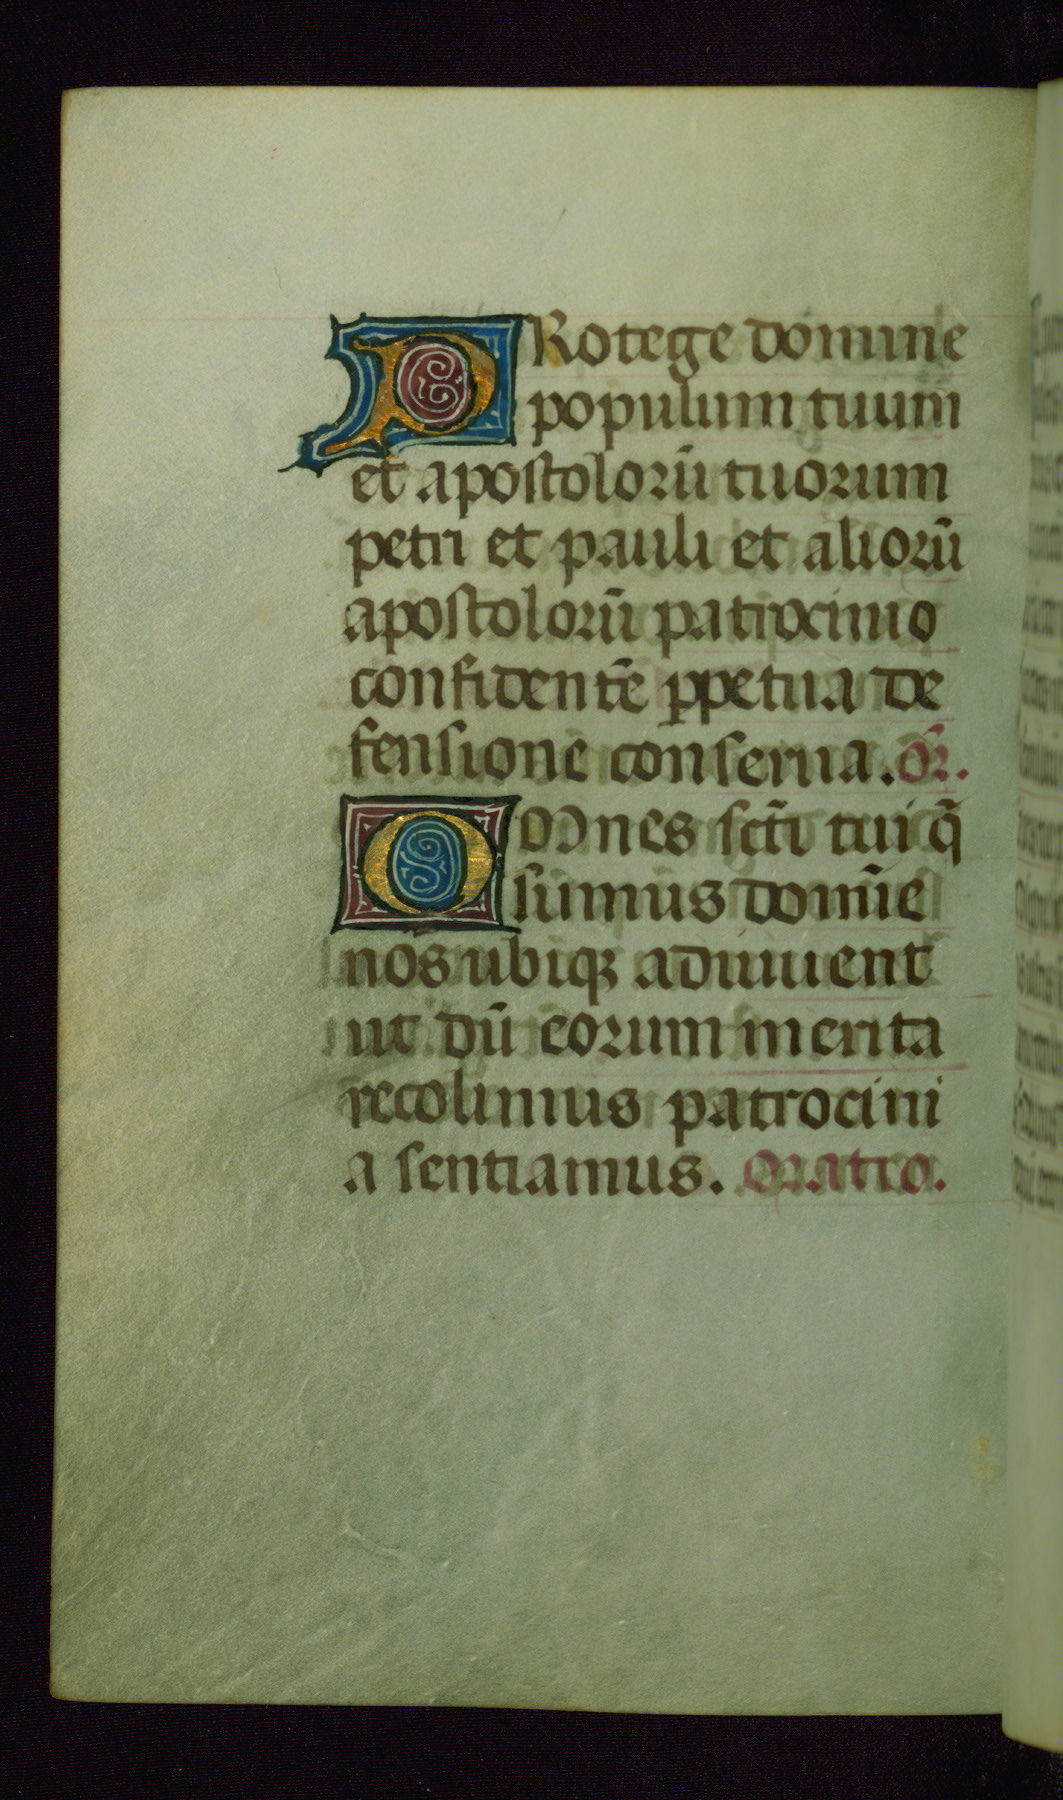 PRotege domine
populum tuum
et apostolorū tuorum
petri et pauli et aliorū
apostolorū patrocinio
confidentē ꝑpetua de
fensione conserua. Or̄.
OMnes sct̄i tui q̄
sumus domīe
nos ubiqꝫ adiuuent
ut dū eorum merita
recolimus patrocini
a sentiamus. Oratio.